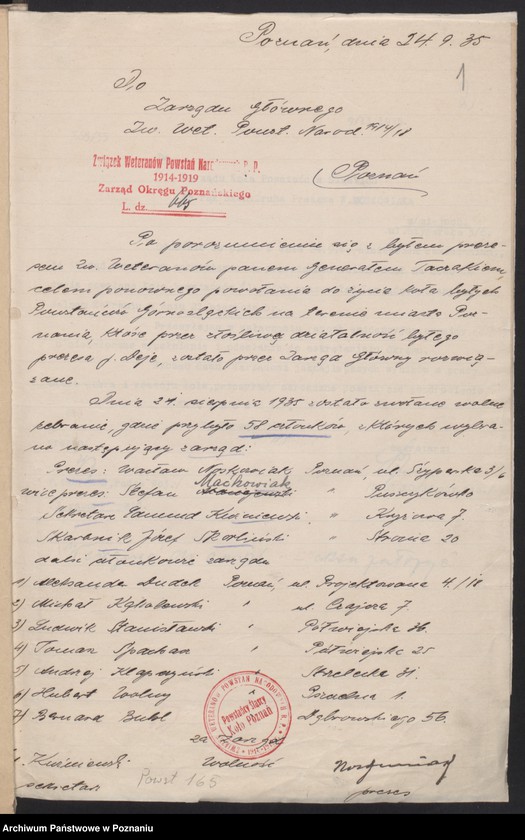 Poznań, dnia 24.9.35
1
Do
Zarządu Głównego
Zw. Wet. Powst. Narod. 1914/18
Poznań
Związek Weteranów Powstań Narodowych R. P.
1914-1919
Zarząd Okręgu Poznańskiego
L. dz. 665
Po porozumieniu się z byłem preze-
sem Zw. Weteranów panem Generałem Taczakiem
celem ponownego powołania do życia koła byłych
Powstańców Górnośląskich na terenie miasta Poz-
nania, które przez złośliwą działalność byłego
prezesa p. Deję, zostało przez Zarząd Główny rozwią-
zane.
Dnia 21. sierpnia 1935 zostało zwołane walne
zebranie, gdzie przybyło 58 członków, z których wybra-
no następujący zarząd:
Prezes: Wacław Noskowiak Poznań, ul. Szyperska 3/6
wiceprezes: Stefan Maćkowiak " Puszczykówko
Sekretarz Edmund Kuśnierski " Kozia 7.
Skarbnik Józef " Stroma 20
dalsi członkowie zarządu
1) Aleksander Dudek Poznań, ul. Projektowana 4/18
2) Michał " ul. Czajcza 7
3) Ludwik Stanisławski " Półwiejska 36.
4) Toman Spachacz " Półwiejska 25
5) Andrzej " Strzelecka 31.
6) Hubert Wolny " 1.
7) Bernard " Dąbrowskiego 56.
Związek Weteranów Powstań Narodowych R. P.
Powstańcy Śląscy
Koło Poznań
za Zarząd
Kuśnierski Wolność
sekretarz prezes
Powst 165
Archiwum Państwowe w Poznaniu